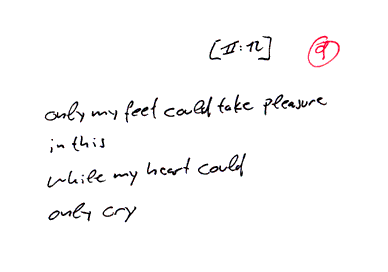 [II:12]
only my feet could take pleasure
in this
while my heart could
only cry